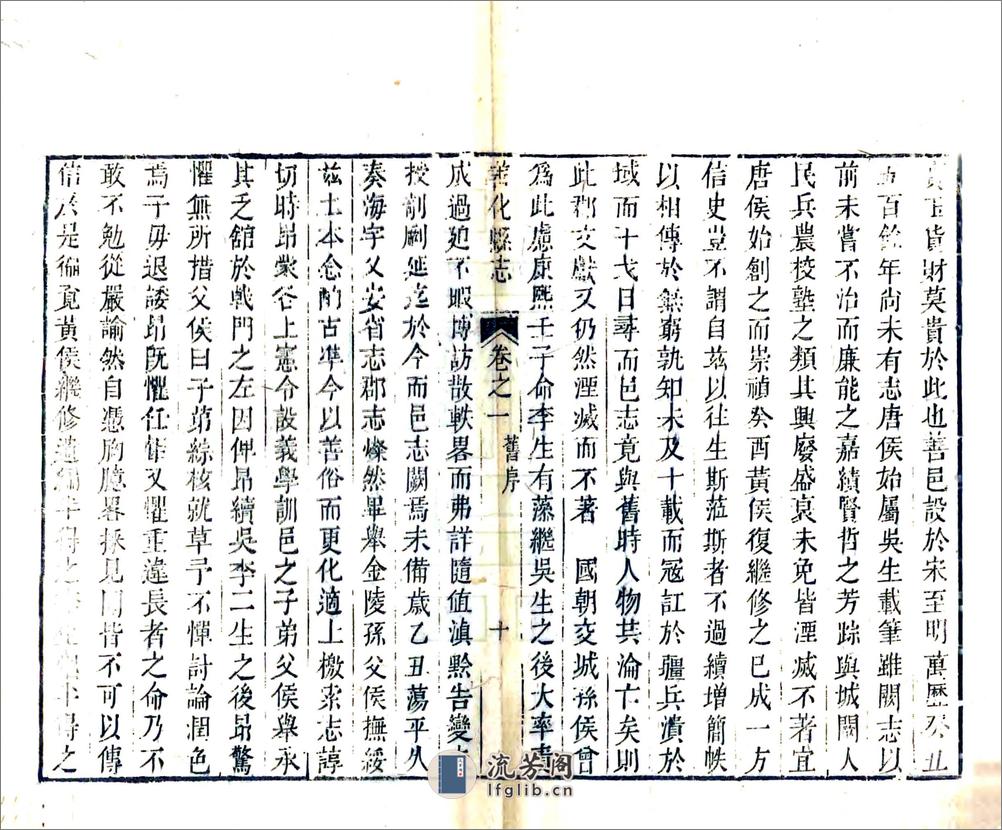 貴百貨財莫貴於此也善邑設於宋至明萬歷癸丑
五百餘年尚未有志唐侯始屬吳生載筆雖闕志以
前未嘗不治而廉能之嘉績賢哲之芳踪與城闕人
民兵農校塾之類其興廢盛衰未免皆湮滅不著宜
唐侯始創之而崇禎癸酉黃侯復繼修之已成一方
信史豈不謂自茲以往生斯蒞斯者不過續增簡帙
以相傳於無窮孰知未及十載而寇訌於疆兵潰於
域而干戈日尋而邑志竟與舊時人物共淪亡矣則
此郡文獻又仍然湮滅而不著 國朝交城孫侯曾
為此慮康熙壬子命李生有藻繼吳生之後大率書
善化縣志 卷之一 舊序 十
成過廹不暇博訪散軼畧而弗詳隨值滇黔告變
授剞劂延迄於今而邑志闕焉未備歲乙丑蕩平久
奏海宇父安省志郡志燦然畢舉金陵孫父侯撫綏
茲土本念酌古準今以善俗而更化適上檄索志諄
切時昂蒙谷上憲令設義學訓邑之子弟父侯舉承
其乏舘於戟門之左因俾昂續吳李二生之後昂驚
懼無所措父侯曰子苐綜核就草予不憚討論潤色
焉子毋退諉昂旣懼任隺又懼重違長者之命乃不
敢不勉從嚴諭然自憑胸臆畧採見聞皆不可以傳
信於是徧覓黃侯繼修遺編 得之 得之
流芳阁
lfglib.cn